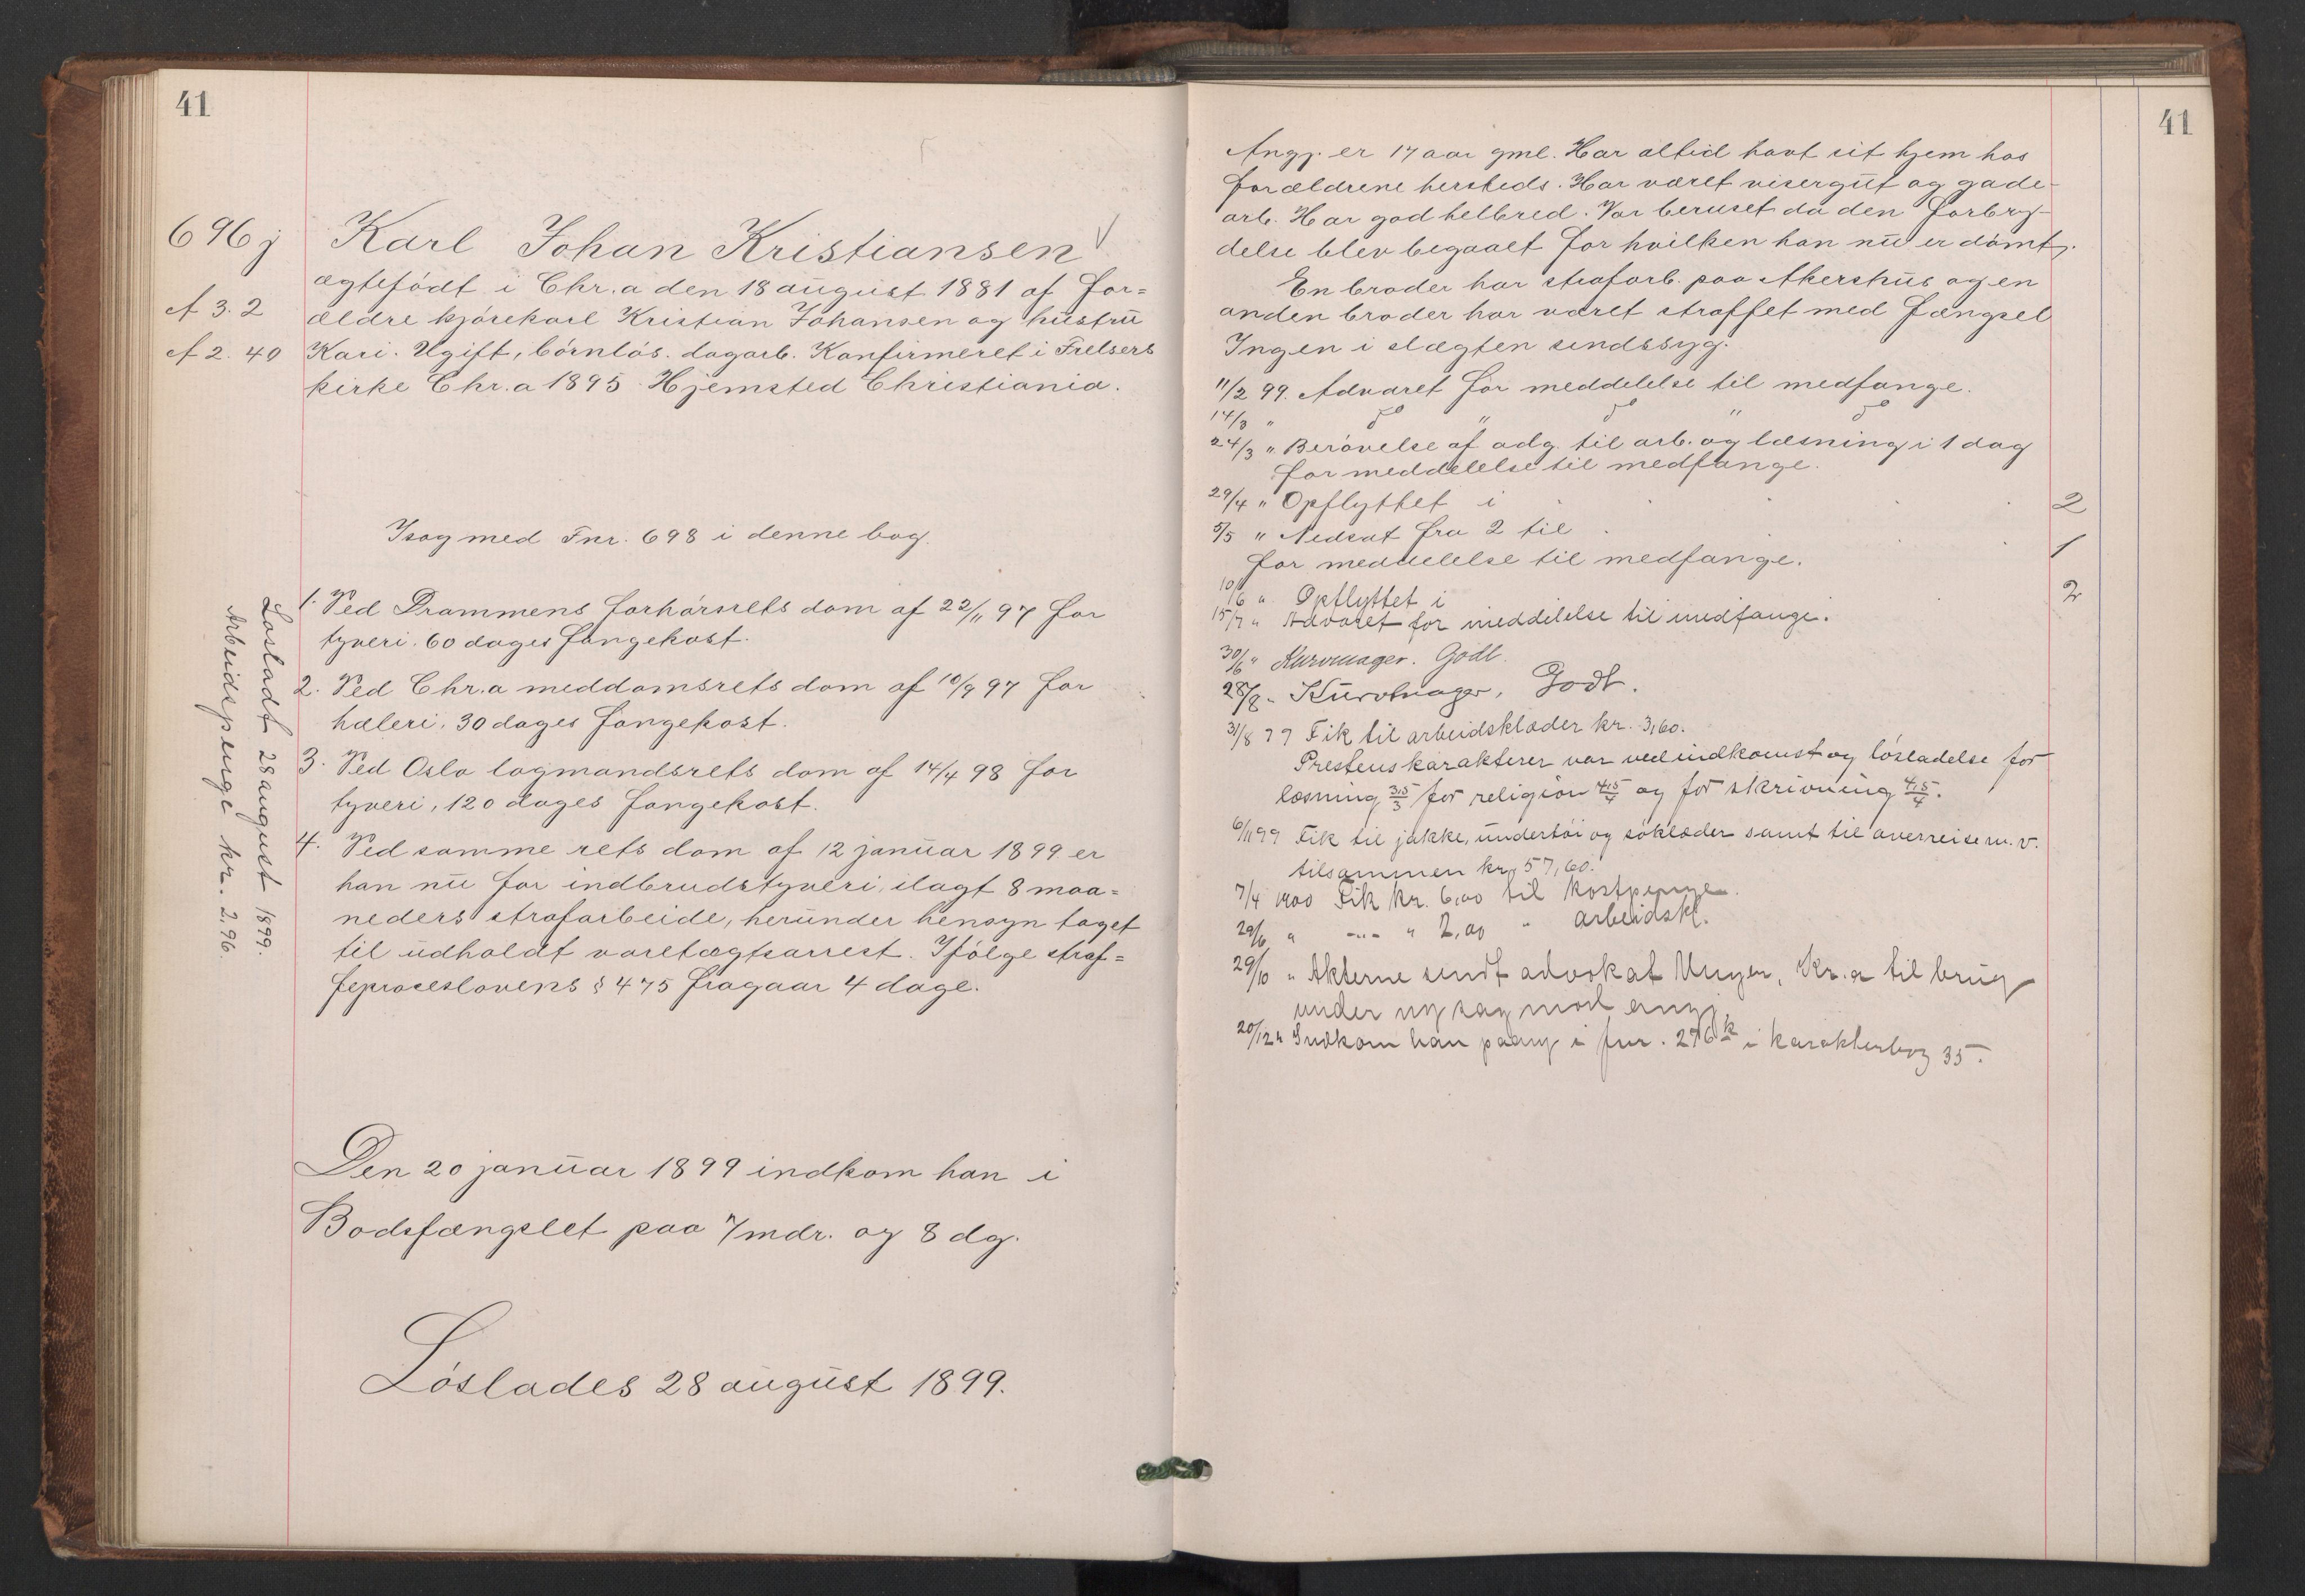 41
696j
A 3. 2
A 2. 40
Karl Johan Kristiansen
ægtefödt i Chr.a den 18 august 1881 af for=
ældre kjörekarl Kristian Johansen og hustru
Kari. Ugift, börnlös. dagarb. Konfirmeret i Frelsers
kirke Chr.a 1895. Hjemsted Christiania.
I sag med Fnr. 698 i denne bog.
1. Ved Drammens forhörsrets dom af 22/11 97 for
tyveri. 60 dages fangekost.
2. Ved Chr.a meddomsrets dom af 10/9 97 for
hæleri. 30 dages fangekost.
3. Ved Oslo lagmandsrets dom af 14/4 98 for
tyveri, 120 dages fangekost.
4. Ved samme rets dom af 12 januar 1899 er
han nu for indbrudstyveri, ilagt 8 maa=
neders strafarbeide, herunder hensyn taget
til udholdt varetægtsarrest. Ifölge straf=
feproceslovens § 475 fragaar 4 dage.
Den 20 januar 1899 indkom han i
Bodsfængslet paa 7 mdr. og 8 dg.
Löslades 28 august 1899.
Lösladt 28 august 1899.
Arbeidspenge kr. 2,96.
41
Angj. er 17 aar gml. Har altid havt sit hjem hos
forældrene hersteds. Har været visergut og gade-
arb. Har god helbred. Var beruset da den forbry-
delse blev begaaet for hvilken han nu er dömt.
En broder har strafarb. paa Akershus og en
anden broder har været straffet med fængsel
Ingen i slægten sindssyg.
11/2 99. Advaret for meddelelse til medfange.
14/3 " do " do " do
24/3 " Berövelse af adg. til arb. og læsning i 1 dag
for meddelelse til medfange.
29/4 " Opflyttet i 2
5/5 " Nedsat fra 2 til 1
for meddelelse til medfange.
10/6 " Opflyttet i 2
15/7 " Advaret for meddelelse til medfange.
30/6 " Kurvmager. Godt.
28/8 - Kurvmager, Godt.
31/8 99 Fik til arbeidsklæder kr. 3,60.
Prestens karakterer var ved indkomst og lösladelse for
læsning 3,5/3 for religion 4,5/4 og for skrivning 4,5/4.
6/11 99 Fik til jakke, undertöi og söklæder samt til overreise m.v.
tilsammen kr. 57,60.
7/4 1900 Fik kr. 6,00 til kostpenge.
29/6 " -"- " 2,00 " arbeidskl.
29/10 " Akterne sendt advokat Unger, Kr.a til brug
under ny sag mod angj.
20/12 " Indkom han paany i fnr. 276 k i karakterbog 35.